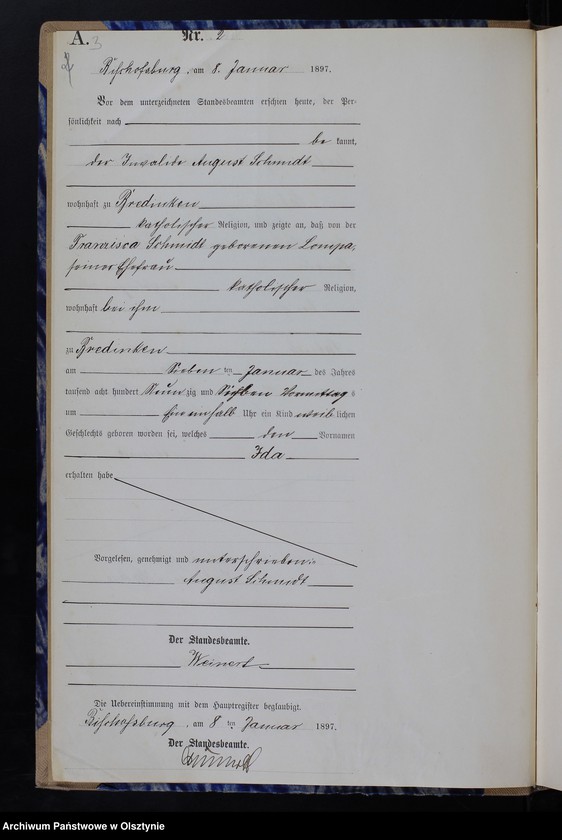 A. 3 Nr. 2
2
Bischofsburg, am 8. Januar 1897.
Vor dem unterzeichneten Standesbeamten erschien heute, der Per-
sönlichkeit nach
be kannt,
der Invalide August Schmidt
wohnhaft zu Bredinken
katholischer Religion, und zeigte an, daß von der
Franzisca Schmidt geborenen Lompa,
seiner Ehefrau
katholischer Religion,
wohnhaft bei ihm
zu Bredinken
am Sieben ten Januar des Jahres
tausend acht hundert Neun zig und Sieben Vormittag s
um Uhr ein Kind weib lichen
Geschlechts geboren worden sei, welches den Vornamen
Ida
erhalten habe
Vorgelesen, genehmigt und unterschrieben
August Schmidt
Der Standesbeamte.
Weinert
Die Uebereinstimmung mit dem Hauptregister beglaubigt.
Bischofsburg, am 8 ten Januar 1897.
Der Standesbeamte.
Archiwum Państwowe w Olsztynie